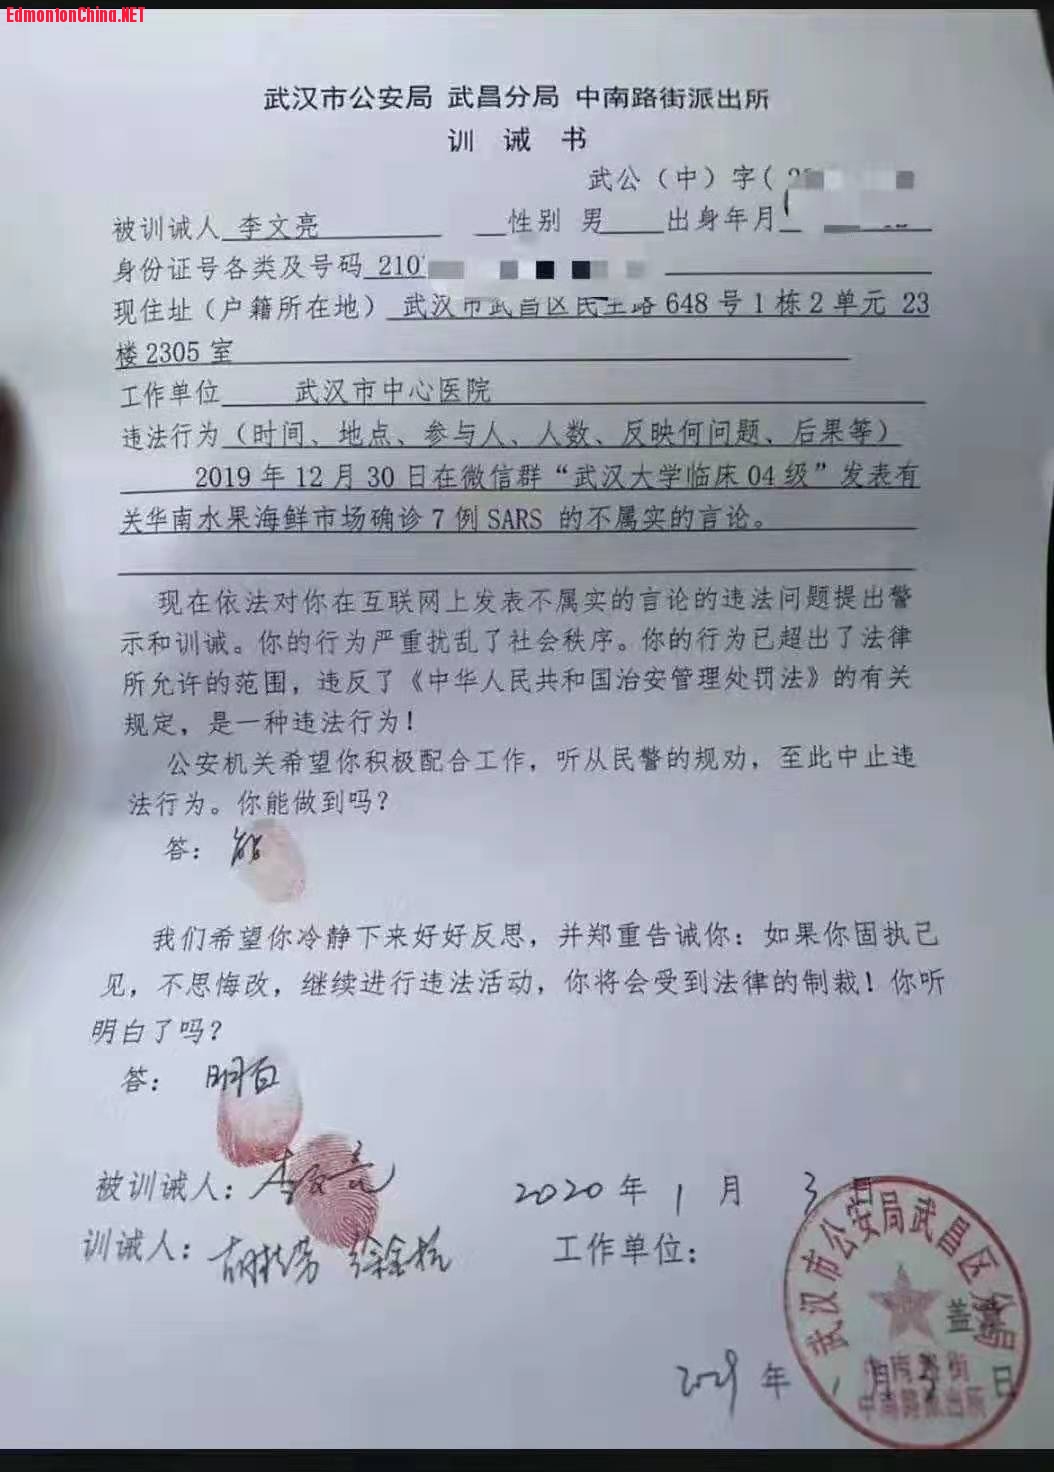 EdmontonChina.NET
武汉市公安局 武昌分局 中南路街派出所
训 诫 书
武公（中）字(
被训诫人 李文亮 性别 男 出身年月
身份证号各类及号码 210
现住址（户籍所在地） 武汉市武昌区民主路 648 号 1 栋 2 单元 23
楼 2305 室
工作单位 武汉市中心医院
违法行为（时间、地点、参与人、人数、反映何问题、后果等）
2019 年 12 月 30 日在微信群“武汉大学临床 04 级”发表有
关华南水果海鲜市场确诊 7 例 SARS 的不属实的言论。
现在依法对你在互联网上发表不属实的言论的违法问题提出警
示和训诫。你的行为严重扰乱了社会秩序。你的行为已超出了法律
所允许的范围，违反了《中华人民共和国治安管理处罚法》的有关
规定，是一种违法行为！
公安机关希望你积极配合工作，听从民警的规劝，至此中止违
法行为。你能做到吗？
答： 能
我们希望你冷静下来好好反思，并郑重告诫你：如果你固执己
见，不思悔改，继续进行违法活动，你将会受到法律的制裁！你听
明白了吗？
答： 明白
被训诫人：李文亮 2020 年 1 月 3 日
训诫人： 工作单位：
武汉市公安局武昌区分局
盖
中南路街
中南路派出所
年 1 月 3 日